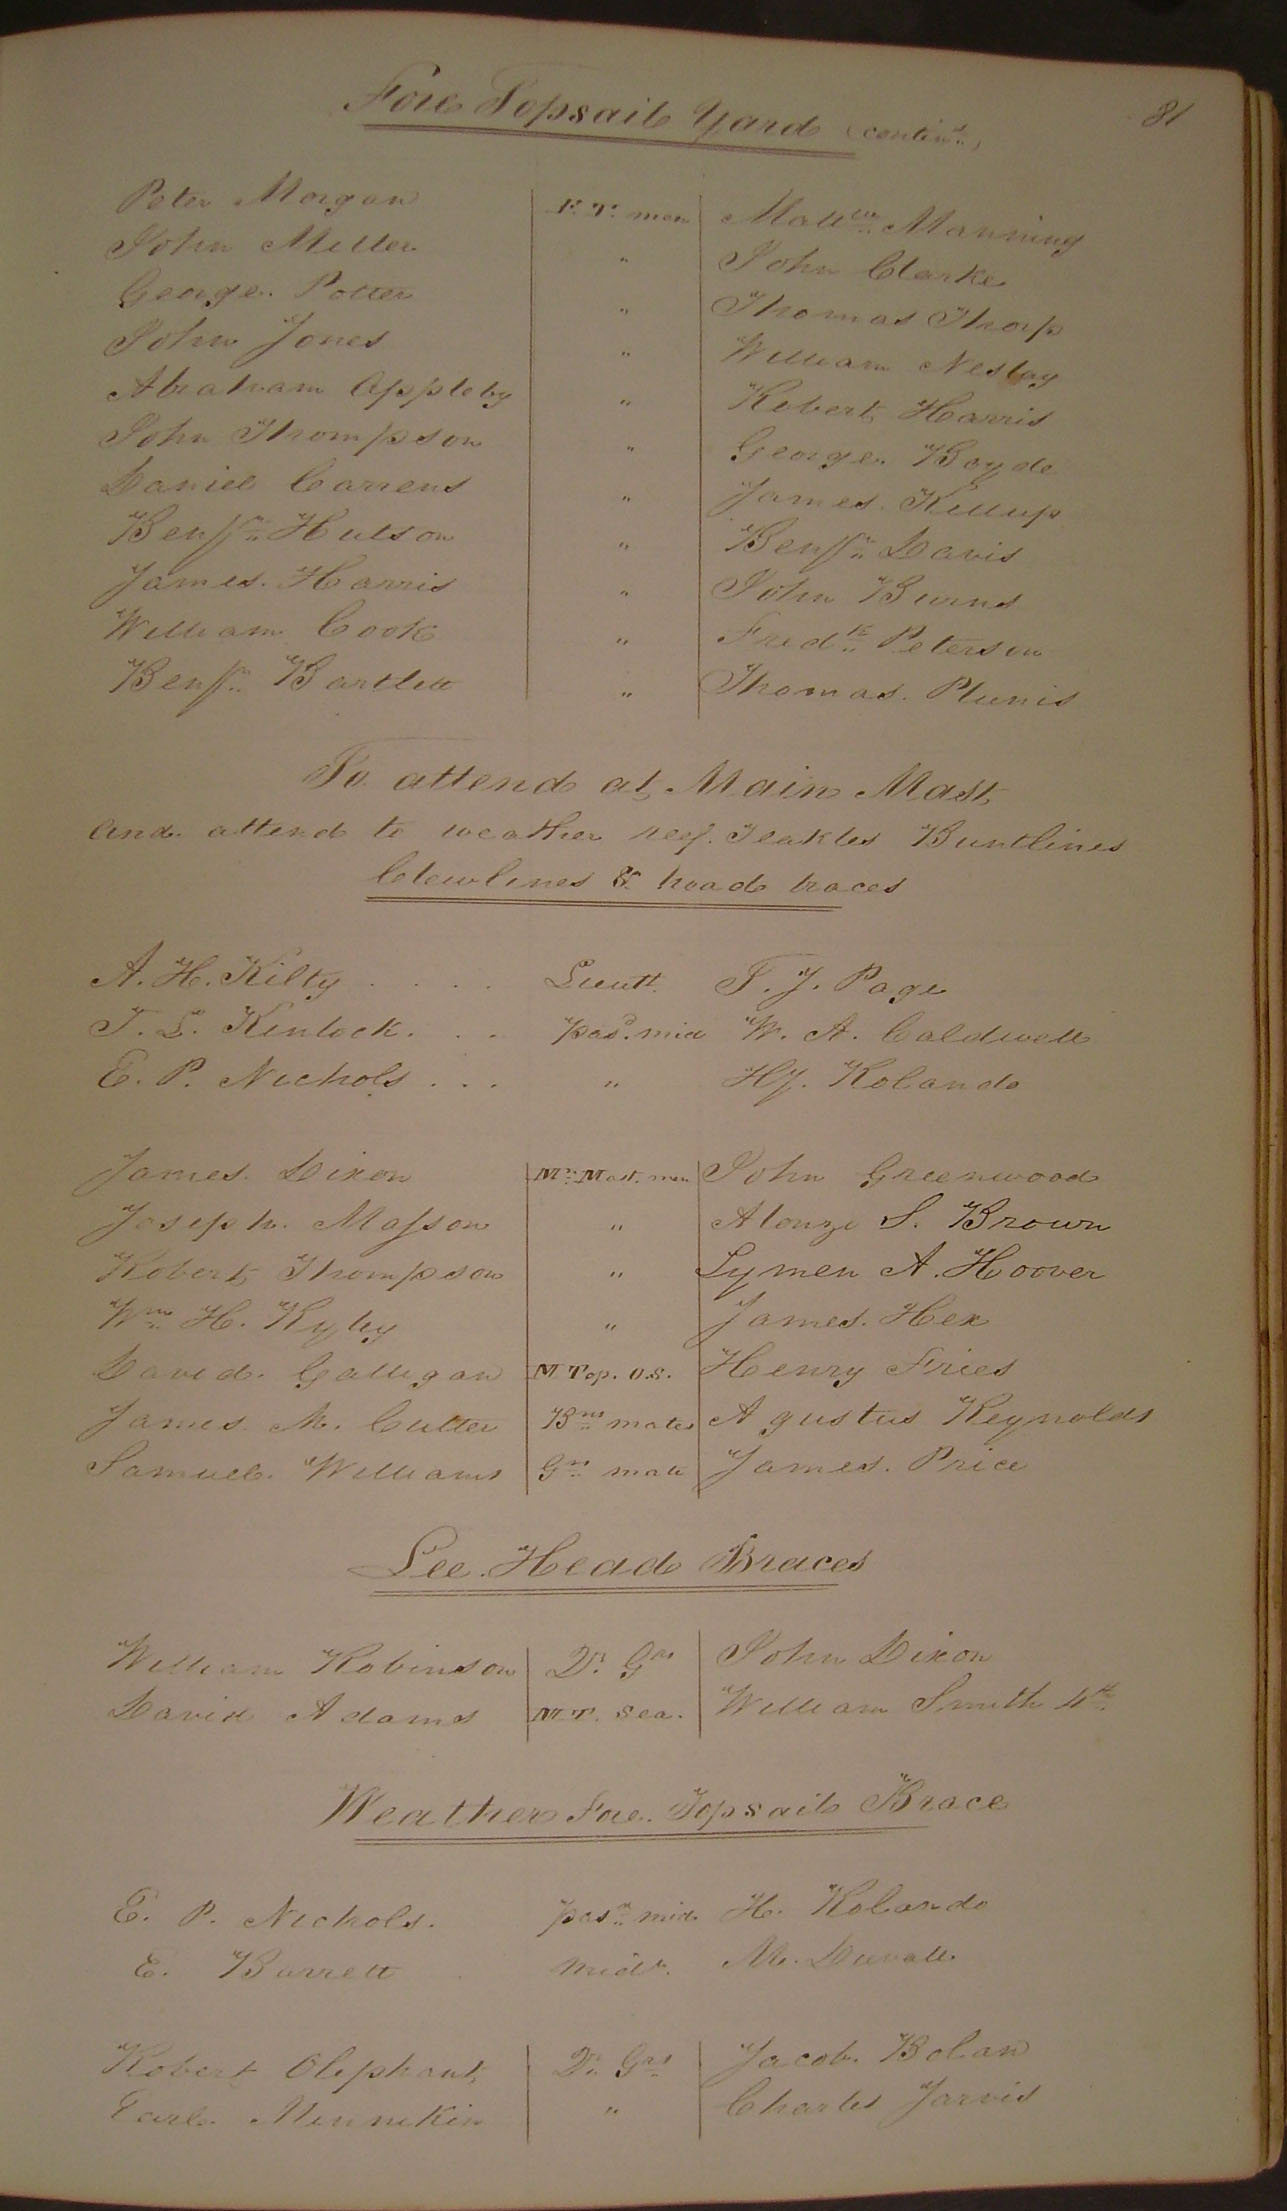 81
Fore Topsail Yard (contind)
Peter Morgan F. T. men Mattw Manning
John Miller " John Clarke
George Potter " Thomas Thorp
John Jones " William Neslay
Abraham Appleby " Robert Harris
John Thompson " George Boyde
Daniel Carrens " James Killup
Benjn Hutson " Benjn Davis
James Harris " John Burns
William Cook " Fredk Peterson
Benjn Bartlett " Thomas Plunis
To attend at Main Mast
and attend to weather reef Teakles Buntlines
Clewlines & head braces
A. H. Kilty . . . . Lieutt. T. J. Page
T. L. Kinlock. . . pasd. mid W. A. Caldwell
E. P. Nichols . . . " HJ. Rolando
James Dixon Mn Mast. men John Greenwood
Joseph Masson " Alonzo S. Brown
Robert Thompson " Lymen A. Hoover
Wm H. Ryby " James Hex
David Galligan M Top. O.S. Henry Fries
James M. Cutter Bns mates Agustus Reynolds
Samuel Williams Gn mate James Price
Lee Head Braces
William Robinson Qr. Grs John Dixon
David Adams M.T. Sea. William Smith 4th
Weather Fore Topsail Brace
E. P. Nichols. pasd mid. H. Rolando
E. Barrett midn. M. Duvall
Robert Oliphant Qr Grs Jacob Bolan
Earl Minnikin " Charles Jarvis